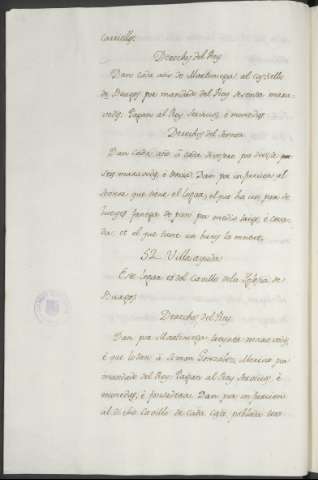 Carriello.
Derechos del Rey
Dan cada año de Martiniega al castillo
de Burgos por mandado del Rey sesenta mara-
vedis. Pagan al Rey servicios, é monedas.
Derechos del Señor
Dan cada año á cada por
seys maravedis, é Dan por infurcion al
Señor que tiene el logar, el que ha un par de
bueyes fanega de pan por medio trigo, é ceva-
da; et el que tiene un buey la meitat.
52. Villa
Este logar es del Cavillo de la Iglesia de
Burgos
Derechos del Rey
Dan por Martiniega treynta maravedis,
é que los den á Gonzalez, Merino por
mandado del Rey. Pagan al Rey servicios é
monedas, é fonsadera. Dan por infurcion
al dicho Cavillo de cada casa poblada tres